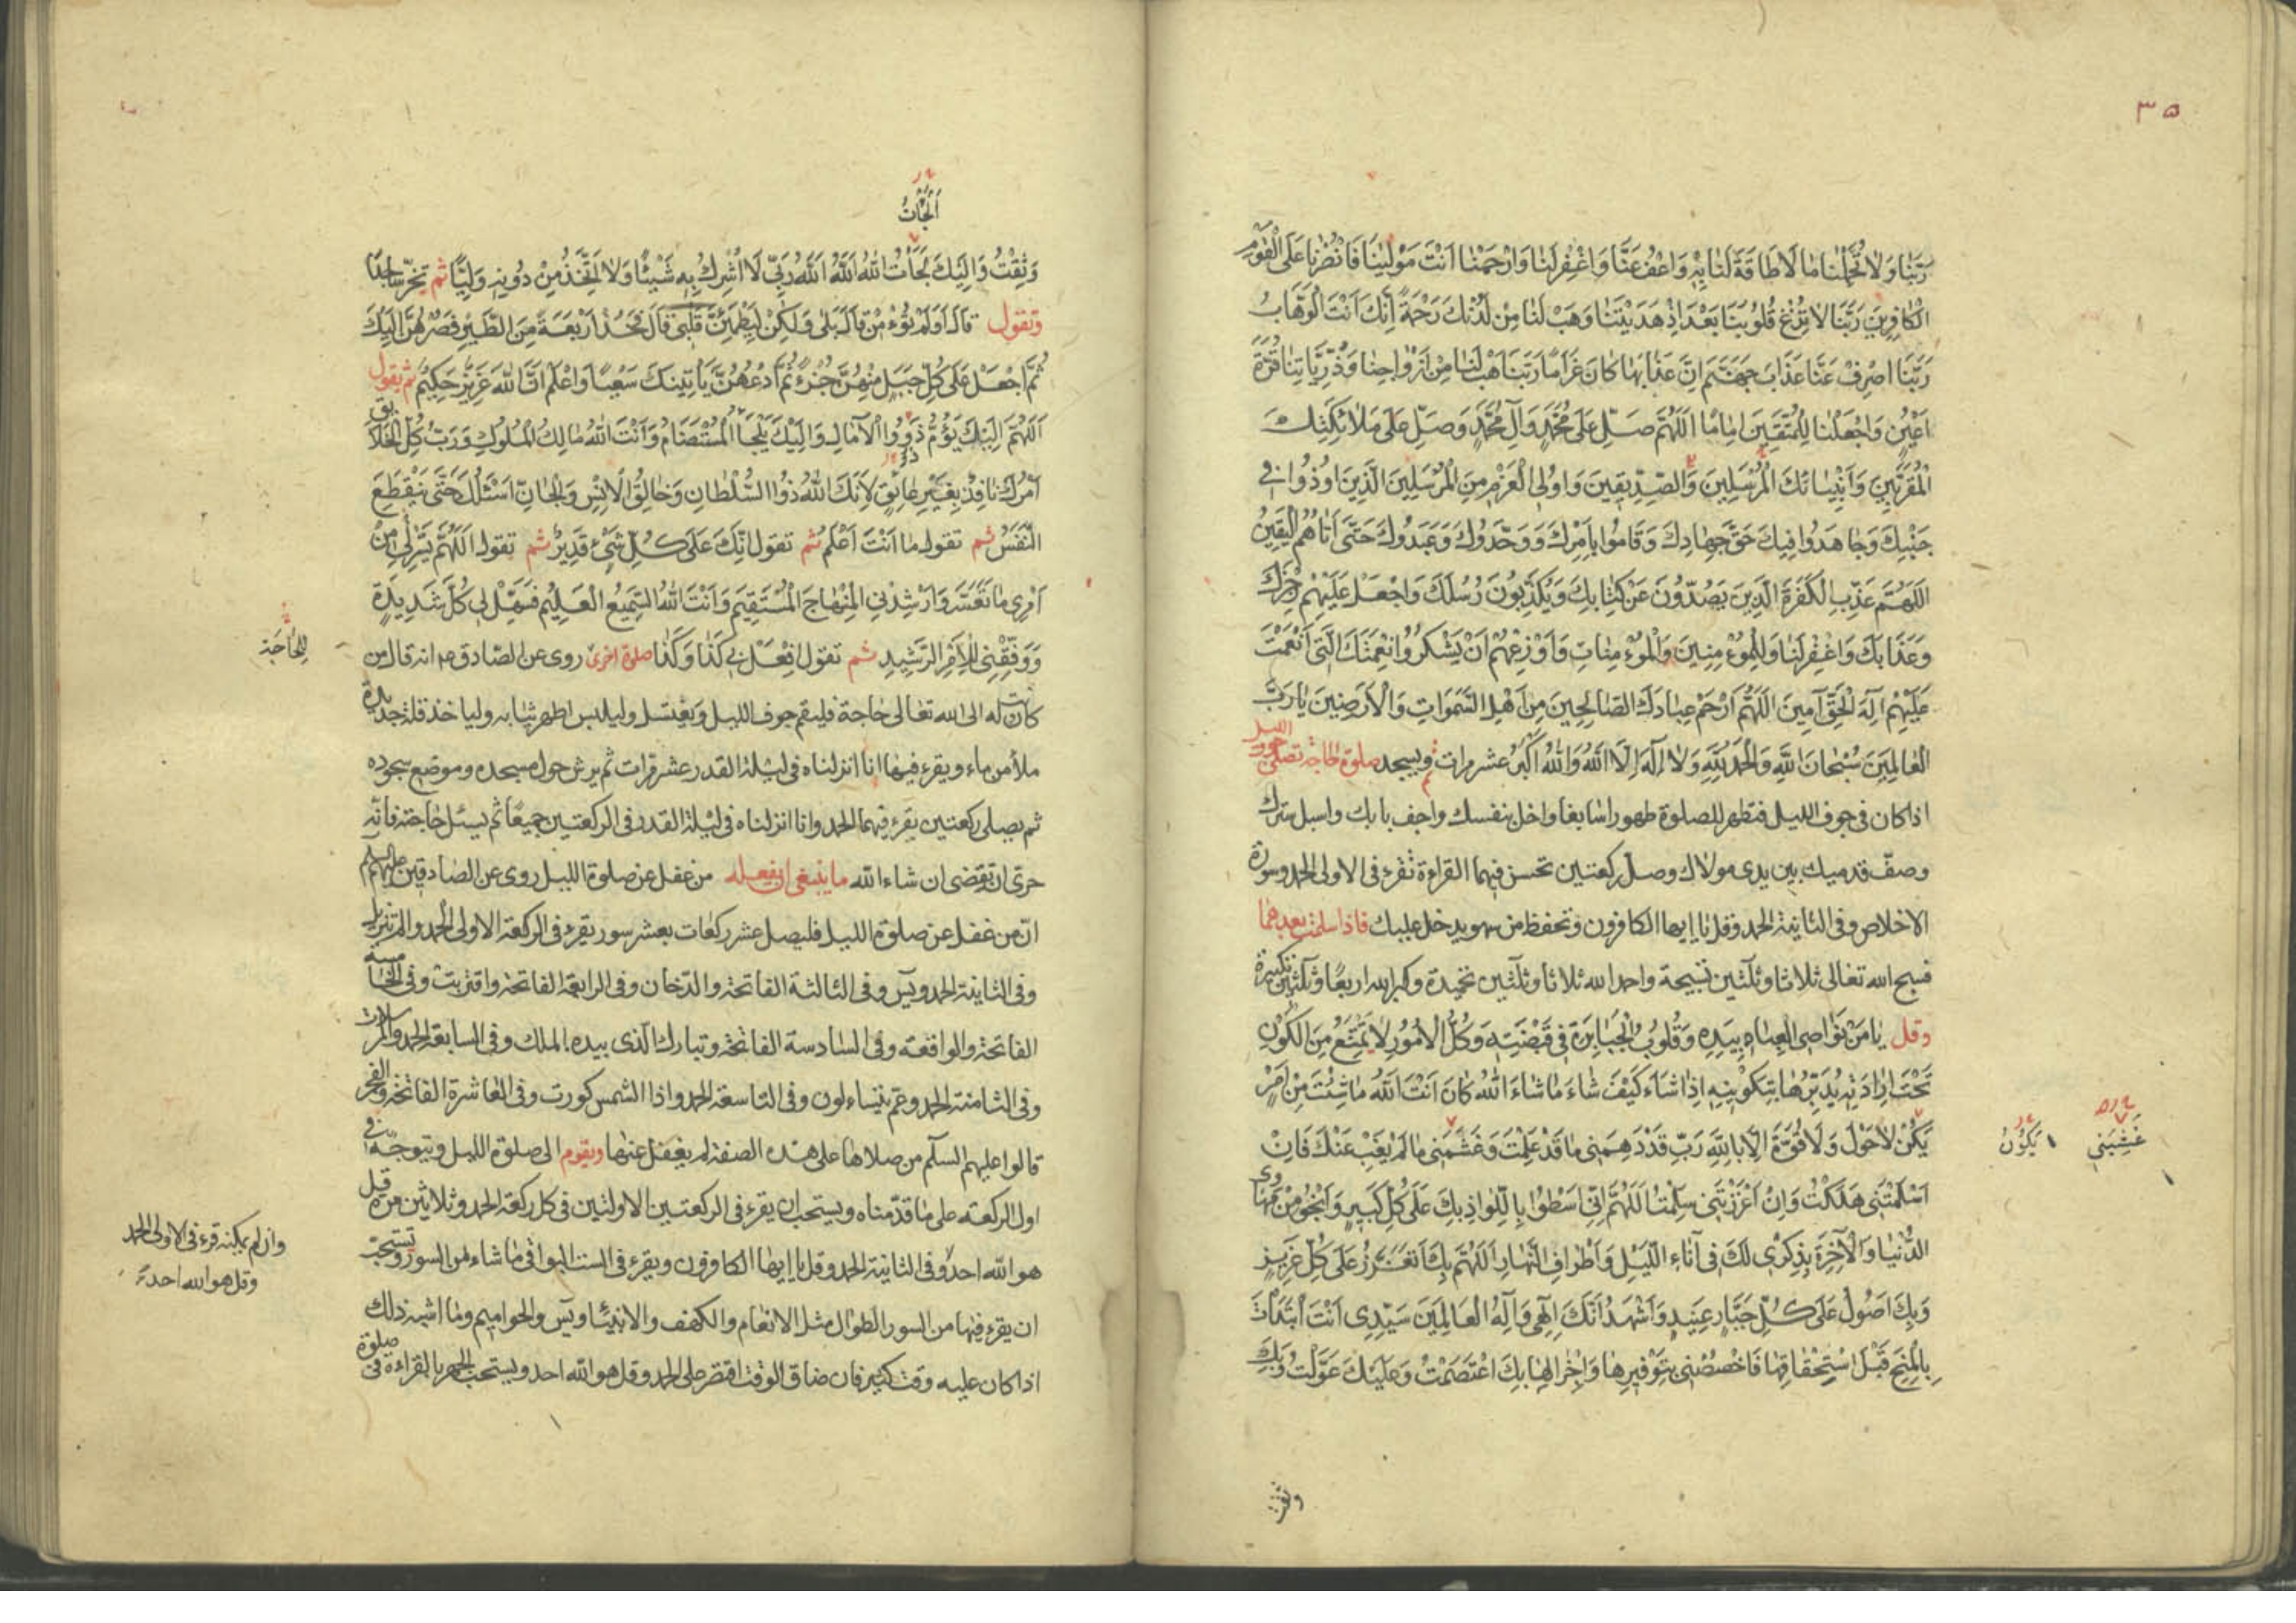 ٣٥
رَبَّنَا وَلَا تُحَمِّلْنَا مَا لَا طَاقَةَ لَنَا بِهِ وَاعْفُ عَنَّا وَاغْفِرْ لَنَا وَارْحَمْنَا اَنْتَ مَوْلٰينَا فَانْصُرْنَا عَلَى الْقَوْمِ
الْكَافِرِينَ رَبَّنَا لَا تُزِغْ قُلُوبَنَا بَعْدَ اِذْ هَدَيْتَنَا وَهَبْ لَنَا مِنْ لَدُنْكَ رَحْمَةً اِنَّكَ اَنْتَ الْوَهَّابُ
رَبَّنَا اصْرِفْ عَنَّا عَذَابَ جَهَنَّمَ اِنَّ عَذَابَهَا كَانَ غَرَامًا رَبَّنَا هَبْ لَنَا مِنْ اَزْوَاجِنَا وَذُرِّيَّاتِنَا قُرَّةَ
اَعْيُنٍ وَاجْعَلْنَا لِلْمُتَّقِينَ اِمَامًا اَللّٰهُمَّ صَلِّ عَلَى مُحَمَّدٍ وَآلِ مُحَمَّدٍ وَصَلِّ عَلَى مَلَائِكَتِكَ
الْمُقَرَّبِينَ وَاَنْبِيَائِكَ الْمُرْسَلِينَ وَالصِّدِّيقِينَ وَاُولِى الْعَزْمِ مِنَ الْمُرْسَلِينَ الَّذِينَ اُوذُوا فِى
جَنْبِكَ وَجَاهَدُوا فِيكَ حَقَّ جِهَادِكَ وَقَامُوا بِاَمْرِكَ وَوَحَّدُوكَ وَعَبَدُوكَ حَتَّى اَتَاهُمُ الْيَقِينُ
اَللّٰهُمَّ عَذِّبِ الْكَفَرَةَ الَّذِينَ يَصُدُّونَ عَنْ كِتَابِكَ وَيُكَذِّبُونَ رُسُلَكَ وَاجْعَلْ عَلَيْهِمْ رِجْزَكَ
وَعَذَابَكَ وَاغْفِرْ لَنَا وَلِلْمُؤْمِنِينَ وَالْمُؤْمِنَاتِ وَاَوْزِعْهُمْ اَنْ يَشْكُرُوا نِعْمَتَكَ الَّتِى اَنْعَمْتَ
عَلَيْهِمْ اِلٰهَ الْحَقِّ آمِينَ اَللّٰهُمَّ ارْحَمْ عِبَادَكَ الصَّالِحِينَ مِنْ اَهْلِ السَّمٰوَاتِ وَالْاَرَضِينَ يَا رَبَّ
الْعَالَمِينَ سُبْحَانَ اللّٰهِ وَالْحَمْدُ لِلّٰهِ وَلَا اِلٰهَ اِلَّا اللّٰهُ وَاللّٰهُ اَكْبَرُ عشر مرات ثم ويسجد صلوة حاجة تصلى جوف الليل
اذا كان فى جوف الليل فتطهر للصلوة طهورا سابغا واخل نفسك واجف بابك واسبل سترك
وصفّ قدميك بين يدى مولاك وصلّ ركعتين تحسن فيهما القراءة تقرء فى الاولى الحمد وسورة
الاخلاص وفى الثانية الحمد وقل يا ايها الكافرون وتحفظ من سهو يدخل عليك فاذا سلمت بعدهما
فسبح الله تعالى ثلاثا وثلثين تسبيحة واحمد الله ثلاثا وثلثين تحميدة وكبر الله اربعًا وثلثين تكبيرة
وقل يَا مَنْ نَوَاصِى الْعِبَادِ بِيَدِهِ وَقُلُوبُ الْجَبَابِرَةِ فِى قَبْضَتِهِ وَكُلُّ الْاُمُورِ لَا يَمْتَنِعُ مِنَ الْكَوْنِ
تَحْتَ اِرَادَتِهِ يُدَبِّرُهَا بِتَكْوِينِهِ اِذَا شَاءَ كَيْفَ شَاءَ مَا شَاءَ اللّٰهُ كَانَ اَنْتَ اللّٰهُ مَا شِئْتَ مِنْ اَمْرٍ
يَكُنْ لَا حَوْلَ وَلَا قُوَّةَ اِلَّا بِاللّٰهِ رَبِّ قَدْ دَهِمَنِى مَا قَدْ عَلِمْتَ وَغَشَّمَنِى مَا لَمْ يَغِبْ عَنْكَ فَاِنْ
يَكُونُ
غَشِيَنِى
اَسْلَمْتَنِى هَلَكْتُ وَاِنْ اَعْزَزْتَنِى سَلِمْتُ اَللّٰهُمَّ اِنِّى اَسْطُوا بِاللِّوَاذِ بِكَ عَلَى كُلِّ كَبِيرٍ وَاَنْجُو مِنْ مَهَاوِى
الدُّنْيَا وَالْآخِرَةِ بِذِكْرِى لَكَ فِى آنَاءِ اللَّيْلِ وَاَطْرَافِ النَّهَارِ اَللّٰهُمَّ بِكَ اَتَعَزَّزُ عَلَى كُلِّ عَزِيزٍ
وَبِكَ اَصُولُ عَلَى كُلِّ جَبَّارٍ عَنِيدٍ وَاَشْهَدُ اَنَّكَ اِلٰهِى وَاِلٰهُ الْعَالَمِينَ سَيِّدِى اَنْتَ ابْتَدَاْتَ
بِالْمِنَحِ قَبْلَ اسْتِحْقَاقِهَا فَاخْصُصْنِى بِتَوْفِيرِهَا وَاِجْزَالِهَا بِكَ اعْتَصَمْتُ وَعَلَيْكَ عَوَّلْتُ وَبِكَ
وثقت
اَلْجَأْتُ
وَثِقْتُ وَاِلَيْكَ لَجَأْتُ اللّٰهُ اَللّٰهُ اَللّٰهُ رَبِّى لَا اُشْرِكُ بِهِ شَيْئًا وَلَا اَتَّخِذُ مِنْ دُونِهِ وَلِيًّا ثم تخرّ ساجدًا
وتقول قَالَ اَوَلَمْ تُؤْمِنْ قَالَ بَلٰى وَلٰكِنْ لِيَطْمَئِنَّ قَلْبِى قَالَ فَخُذْ اَرْبَعَةً مِنَ الطَّيْرِ فَصُرْهُنَّ اِلَيْكَ
ثُمَّ اجْعَلْ عَلَى كُلِّ جَبَلٍ مِنْهُنَّ جُزْءً ثُمَّ ادْعُهُنَّ يَأْتِينَكَ سَعْيًا وَاعْلَمْ اَنَّ اللّٰهَ عَزِيزٌ حَكِيمٌ ثم يقول
اَللّٰهُمَّ اِلَيْكَ يَؤُمُّ ذَوُوا الْآمَالِ وَاِلَيْكَ يَلْجَأُ الْمُسْتَضَامُ وَاَنْتَ اللّٰهُ مَالِكُ الْمُلُوكِ وَرَبُّ كُلِّ الْخَلَائِقِ
اَمْرُكَ نَافِذٌ بِغَيْرِ عَائِقٍ لِاَنَّكَ اللّٰهُ ذُوا السُّلْطَانِ وَخَالِقُ الْاِنْسِ وَالْجَانِّ اَسْئَلُكَ حَتَّى يَنْقَطِعَ
النَّفَسُ ثم تقول مَا اَنْتَ اَعْلَمُ ثم تقول اِنَّكَ عَلَى كُلِّ شَىْءٍ قَدِيرٌ ثم تقول اَللّٰهُمَّ يَسِّرْ لِى مِنْ
اَمْرِى مَا تَعَسَّرَ وَاَرْشِدْنِى الْمِنْهَاجَ الْمُسْتَقِيمَ وَاَنْتَ اللّٰهُ السَّمِيعُ الْعَلِيمُ فَسَهِّلْ لِى كُلَّ شَدِيدَةٍ
وَوَفِّقْنِى لِلْاَمْرِ الرَّشِيدِ ثم تقول اِفْعَلْ بِى كَذَا وَكَذَا صلوة اخرى روى عن الصادق ع انه قال من
لِلْحَاجَة
كانت له الى الله تعالى حاجة فليقم جوف الليل ويغتسل وليلبس اطهر ثيابه ولياخذ قلة جديدة
ملأ من ماء ويقرء فيها انا انزلناه فى ليلة القدر عشر مرات ثم يرش حول مسجده وموضع سجوده
ثم يصلى ركعتين يقرء فيهما الحمد وانا انزلناه فى ليلة القدر فى الركعتين جميعًا ثم يسئل حاجته فانه
حرىّ ان تقضى ان شاء الله ما ينبغى ان يفعله من غفل عن صلوة الليل روى عن الصادقين عليهم السلم
انّ من غفل عن صلوة الليل فليصل عشر ركعات بعشر سور يقرء فى الركعة الاولى الحمد والم تنزيل
وفى الثانية الحمد ويس وفى الثالثة الفاتحة والدّخان وفى الرابعة الفاتحة واقتربت وفى الخامسة
الفاتحة والواقعة وفى السادسة الفاتحة وتبارك الذى بيده الملك وفى السابعة الحمد والمرسلات
وفى الثامنة الحمد وعم يتساءلون وفى التاسعة الحمد واذا الشمس كورت وفى العاشرة الفاتحة والفجر
قالوا عليهم السلم من صلاها على هذه الصفة لم يغفل عنها ويقوم الى صلوة الليل ويتوجّه فى
اول الركعة على ما قدّمناه ويستحب ان يقرء فى الركعتين الاولتين فى كل ركعة الحمد وثلاثين مرة قل
هو الله احد وفى الثانية الحمد وقل يا ايها الكافرون ويقرء فى الست البواقى ما شاء من السور ويستحب
وان لم يمكنه قرء فى الاولى الحمد
وقل هو الله احد
ان يقرء فيها من السور الطوال مثل الانعام والكهف والانبيا ويس والحواميم وما اشبه ذلك
اذا كان عليه وقت كثير فان ضاق الوقت اقتصر على الحمد وقل هو الله احد ويستحب الجهر بالقراءة فى صلوة